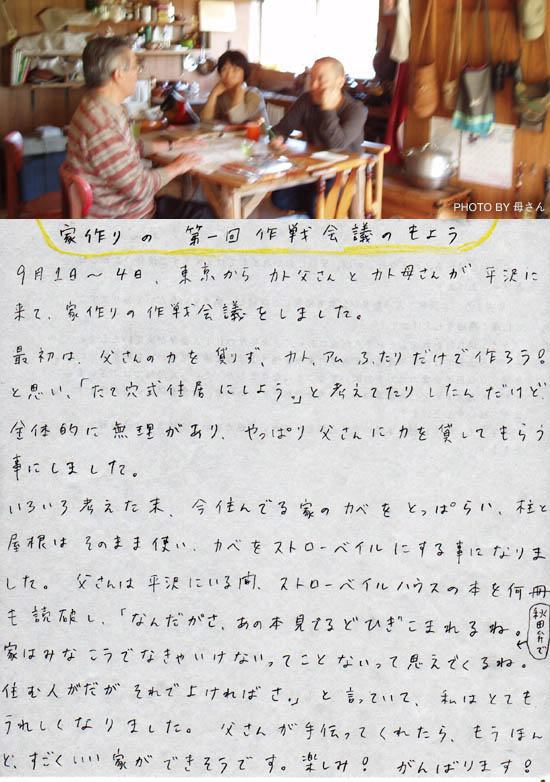 PHOTO BY 母さん
家作りの 第一回 作戦会議のもよう
9月1日〜4日、東京から カト父さんと カト母さんが 平沢に
来て、家作りの作戦会議をしました。
最初は、父さんの力を貸りず、カト、アム ふたりだけで作ろう!
と思い、「たて穴式住居にしよう。」と考えてたりしたんだけど、
全体的に無理があり、やっぱり父さんに力を貸してもらう
事にしました。
いろいろ考えた末、今住んでる家のカベをとっぱらい、柱と
屋根はそのまま使い、カベをストローベイルにする事になりま
した。 父さんは平沢にいる間、ストローベイルハウスの本を何冊
も読破し、「なんだがさ、あの本見でるどひぎこまれるね。
秋田弁で
家はみなこうでなきゃいけないってことないって思えでくるね。
住む人がだが それで上ければさ。」と言っていて、私はとても
うれしくなりました。 父さんが手伝ってくれたら、もうほん
と、すごくいい家ができそうです。楽しみ! がんばります!